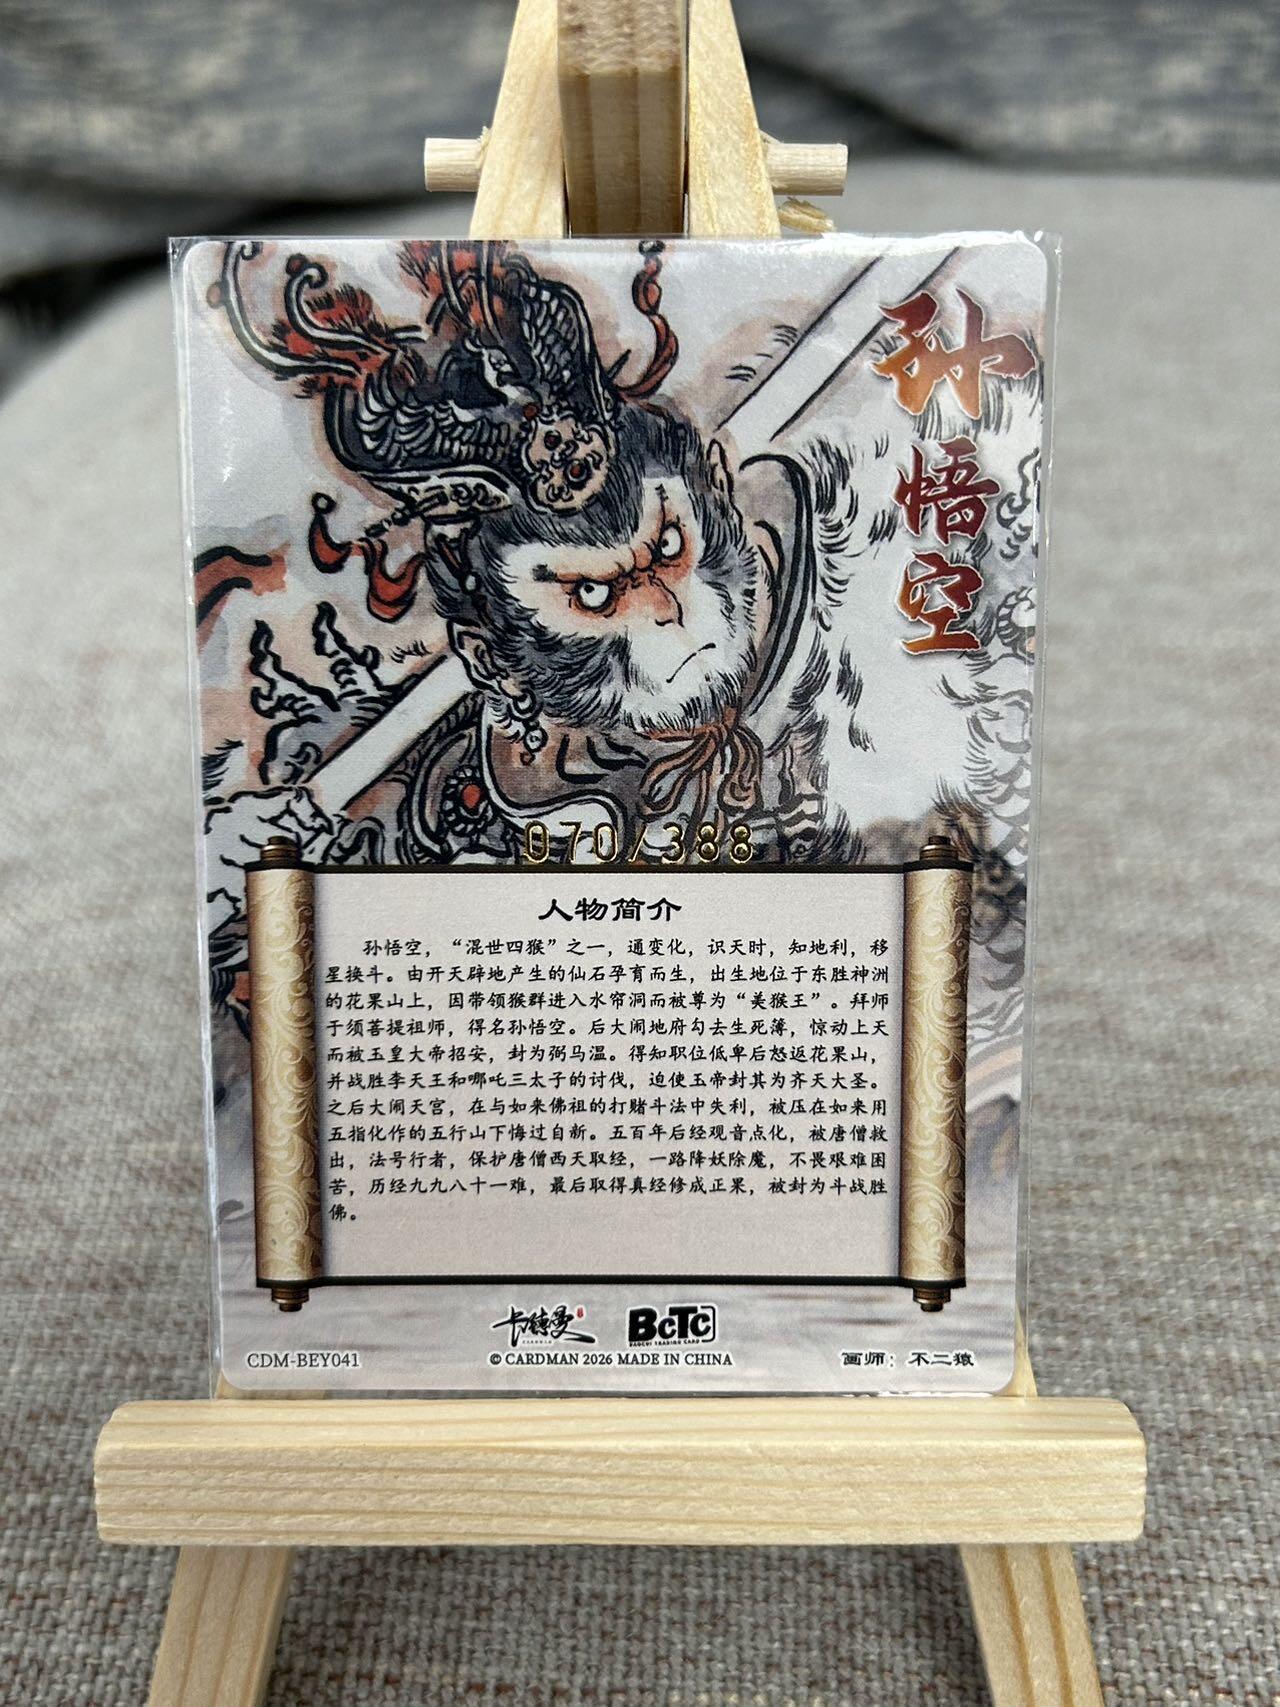 孙悟空
070/388
人物简介
孙悟空，“混世四猴”之一，通变化，识天时，知地利，移
星换斗。由开天辟地产生的仙石孕育而生，出生地位于东胜神洲
的花果山上，因带领猴群进入水帘洞而被尊为“美猴王”。拜师
于须菩提祖师，得名孙悟空。后大闹地府勾去生死簿，惊动上天
而被玉皇大帝招安，封为弼马温。得知职位低卑后怒返花果山，
并战胜李天王和哪吒三太子的讨伐，迫使玉帝封其为齐天大圣。
之后大闹天宫，在与如来佛祖的打赌斗法中失利，被压在如来用
五指化作的五行山下悔过自新。五百年后经观音点化，被唐僧救
出，法号行者，保护唐僧西天取经，一路降妖除魔，不畏艰难困
苦，历经九九八十一难，最后取得真经修成正果，被封为斗战胜
佛。
卡德曼
BCTC
CDM-BEY041
© CARDMAN 2026 MADE IN CHINA
画师：不二猿